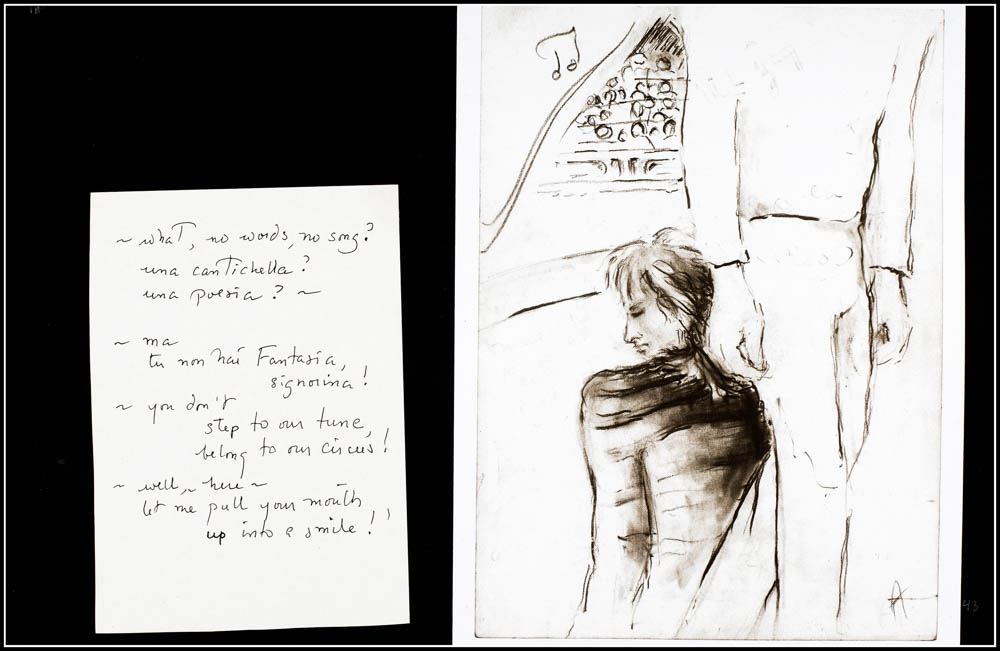 ~ what, no words, no song?
una cantichella?
una poesia? ~
~ ma
tu non hai Fantasia,
signorina!
~ you don't
step to our tune,
belong to our circus!
~ well, ~ here ~
let me pull your mouth
up into a smile!'
A
43